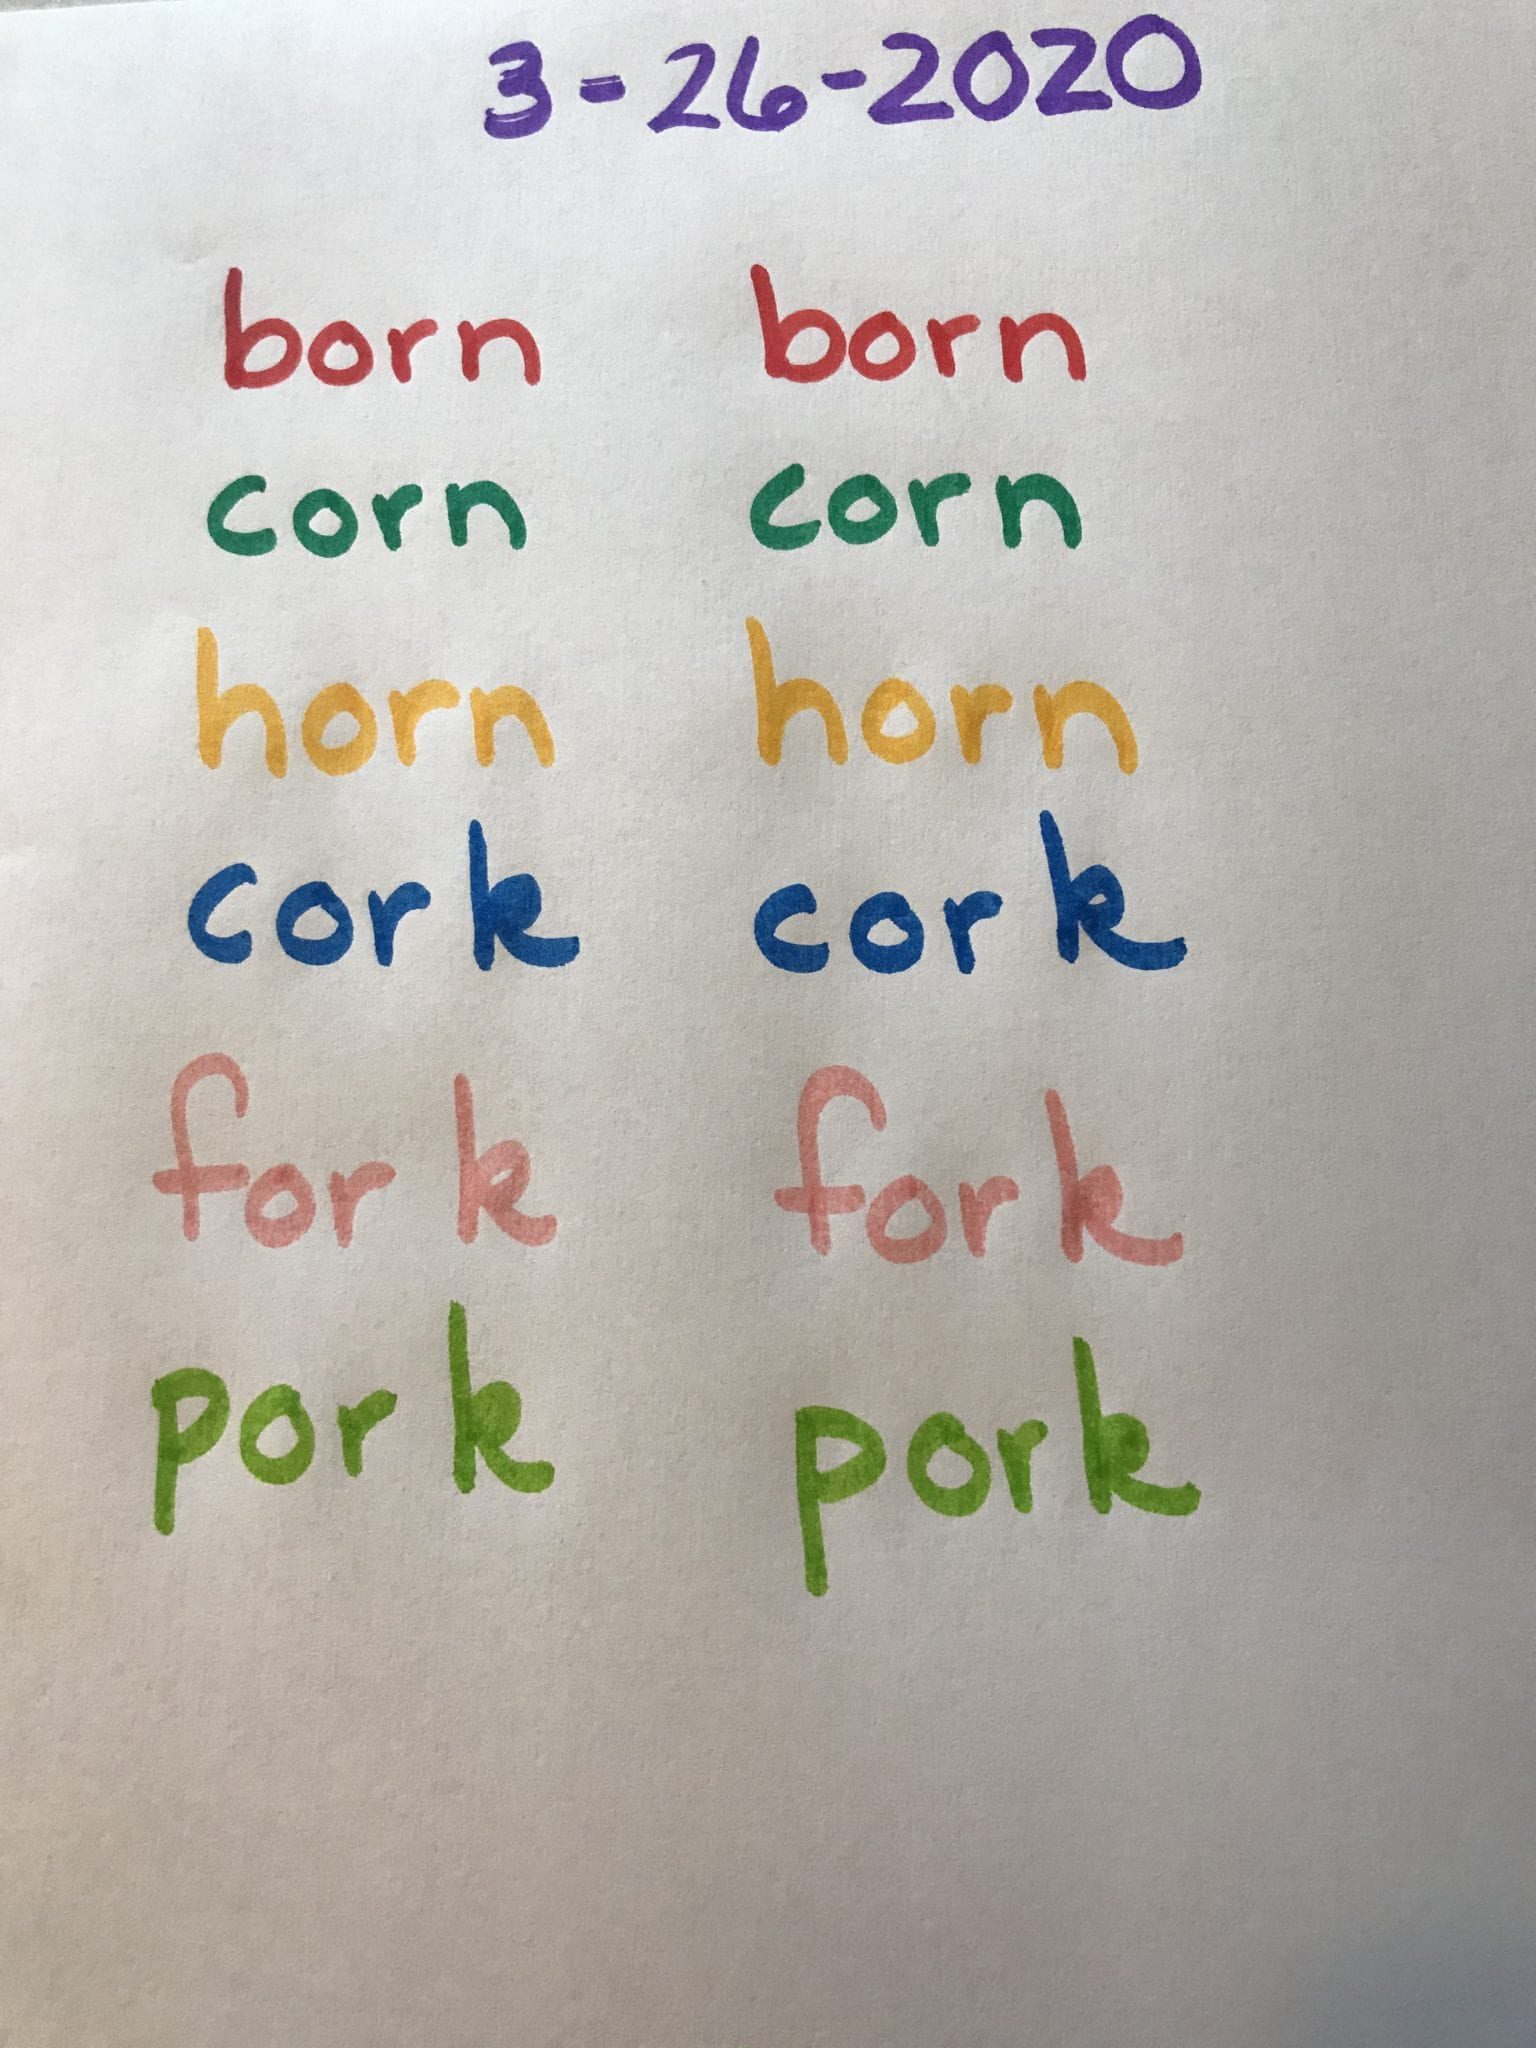 3-26-2020
born born
corn corn
horn horn
cork cork
fork fork
pork pork